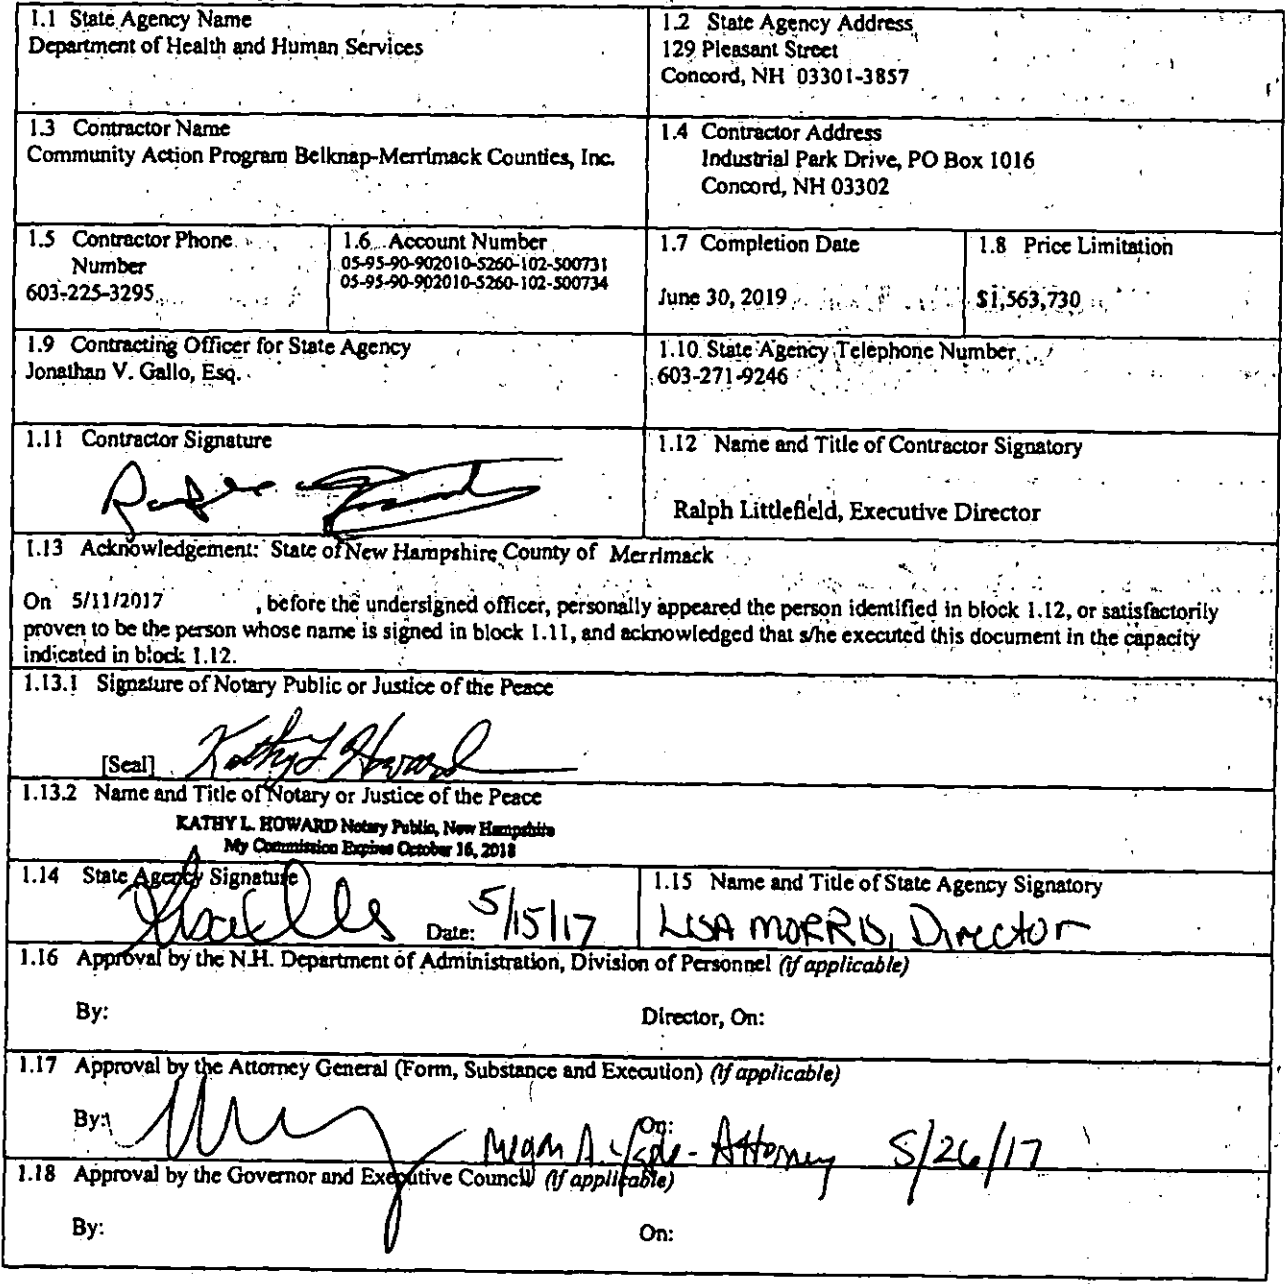 1.1 State Agency Name
Department of Health and Human Services
1.2 State Agency Address
129 Pleasant Street
Concord, NH 03301-3857
1.3 Contractor Name
Community Action Program Belknap-Merrimack Counties, Inc.
1.4 Contractor Address
Industrial Park Drive, PO Box 1016
Concord, NH 03302
1.5 Contractor Phone
Number
603-225-3295
1.6 Account Number
05-95-90-902010-5260-102-500731
05-95-90-902010-5260-102-500734
1.7 Completion Date
June 30, 2019
1.8 Price Limitation
$1,563,730
1.9 Contracting Officer for State Agency
Jonathan V. Gallo, Esq.
1.10 State Agency Telephone Number
603-271-9246
1.11 Contractor Signature
1.12 Name and Title of Contractor Signatory
Ralph Littlefield, Executive Director
1.13 Acknowledgement: State of New Hampshire, County of Merrimack
On 5/11/2017 , before the undersigned officer, personally appeared the person identified in block 1.12, or satisfactorily
proven to be the person whose name is signed in block 1.11, and acknowledged that s/he executed this document in the capacity
indicated in block 1.12.
1.13.1 Signature of Notary Public or Justice of the Peace
[Seal] Kathy L Howard
1.13.2 Name and Title of Notary or Justice of the Peace
KATHY L. HOWARD Notary Public, New Hampshire
My Commission Expires October 16, 2018
1.14 State Agency Signature
Date: 5/15/17
1.15 Name and Title of State Agency Signatory
LISA MORRIS, Director
1.16 Approval by the N.H. Department of Administration, Division of Personnel (if applicable)
By: Director, On:
1.17 Approval by the Attorney General (Form, Substance and Execution) (if applicable)
By: On:
Megan A. - Attorney 5/26/17
1.18 Approval by the Governor and Executive Council (if applicable)
By: On: